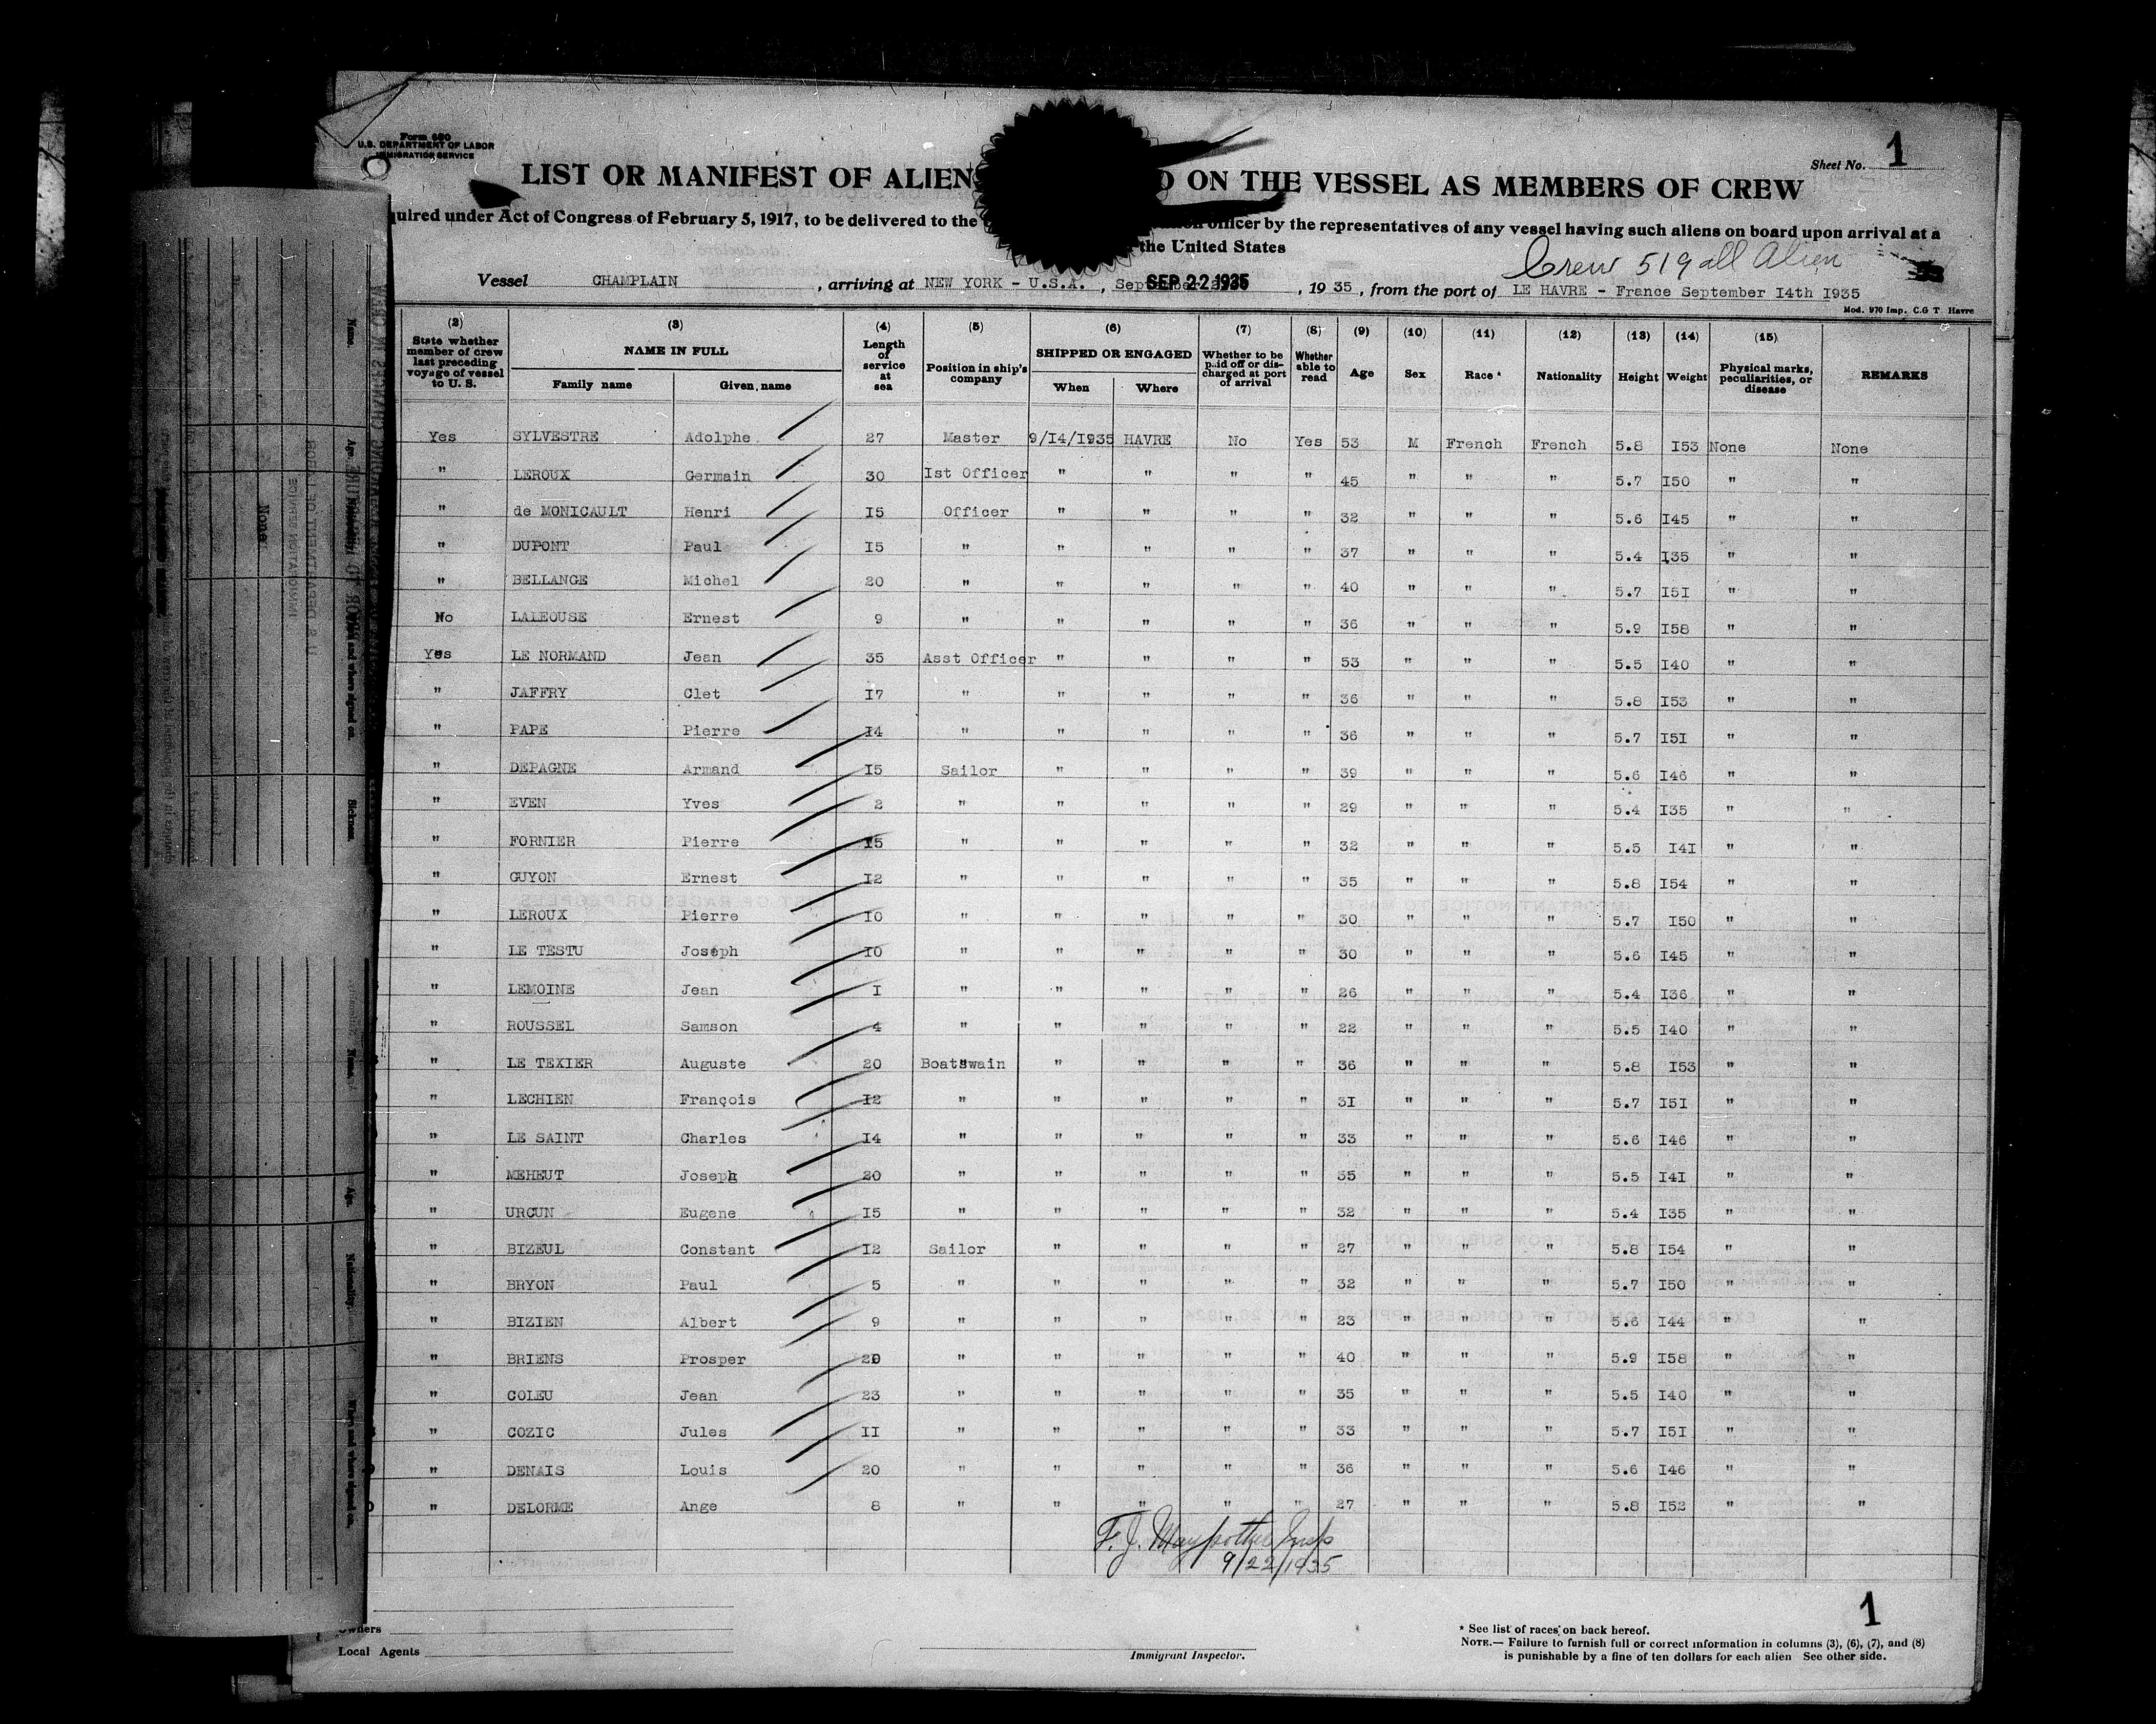 Form 680
U.S. DEPARTMENT OF LABOR
IMMIGRATION SERVICE
Sheet No. 1
LIST OR MANIFEST OF ALIENS ON THE VESSEL AS MEMBERS OF CREW
quired under Act of Congress of February 5, 1917, to be delivered to the officer by the representatives of any vessel having such aliens on board upon arrival at a
the United States
Crew 519 all Alien
Vessel CHAMPLAIN , arriving at NEW YORK - U.S.A. , SEP 22 1935 , 19 35 , from the port of LE HAVRE - France September I4th I935
Mod. 970 Imp. C.G T. Havre
(2) (3) (4) (5) (6) (7) (8) (9) (10) (11) (12) (13) (14) (15)
State whether member of crew last preceding voyage of vessel to U. S. NAME IN FULL Family name Given name Length of service at sea Position in ship's company SHIPPED OR ENGAGED When Where Whether to be paid off or discharged at port of arrival Whether able to read Age Sex Race * Nationality Height Weight Physical marks, peculiarities, or disease REMARKS
Yes SYLVESTRE Adolphe 27 Master 9/I4/I935 HAVRE No Yes 53 M French French 5.8 I53 None None
" LEROUX Germain 30 Ist Officer " " " " 45 " " " 5.7 I50 " "
" de MONICAULT Henri I5 Officer " " " " 32 " " " 5.6 I45 " "
" DUPONT Paul I5 " " " " " 37 " " " 5.4 I35 " "
" BELLANGE Michel 20 " " " " " 40 " " " 5.7 I5I " "
No LALEOUSE Ernest 9 " " " " " 36 " " " 5.9 I58 " "
Yes LE NORMAND Jean 35 Asst Officer " " " " 53 " " " 5.5 I40 " "
" JAFFRY Clet I7 " " " " " 36 " " " 5.8 I53 " "
" PAPE Pierre I4 " " " " " 36 " " " 5.7 I5I " "
" DEPAGNE Armand I5 Sailor " " " " 39 " " " 5.6 I46 " "
" EVEN Yves 2 " " " " " 29 " " " 5.4 I35 " "
" FORNIER Pierre I5 " " " " " 32 " " " 5.5 I4I " "
" GUYON Ernest I2 " " " " " 35 " " " 5.8 I54 " "
" LEROUX Pierre I0 " " " " " 30 " " " 5.7 I50 " "
" LE TESTU Joseph I0 " " " " " 30 " " " 5.6 I45 " "
" LEMOINE Jean I " " " " " 26 " " " 5.4 I36 " "
" ROUSSEL Samson 4 " " " " " 22 " " " 5.5 I40 " "
" LE TEXIER Auguste 20 Boatswain " " " " 36 " " " 5.8 I53 " "
" LECHIEN François I2 " " " " " 3I " " " 5.7 I5I " "
" LE SAINT Charles I4 " " " " " 33 " " " 5.6 I46 " "
" MEHEUT Joseph 20 " " " " " 35 " " " 5.5 I4I " "
" URCUN Eugene I5 " " " " " 32 " " " 5.4 I35 " "
" BIZEUL Constant I2 Sailor " " " " 27 " " " 5.8 I54 " "
" BRYON Paul 5 " " " " " 32 " " " 5.7 I50 " "
" BIZIEN Albert 9 " " " " " 23 " " " 5.6 I44 " "
" BRIENS Prosper 20 " " " " " 40 " " " 5.9 I58 " "
" COLEU Jean 23 " " " " " 35 " " " 5.5 I40 " "
" COZIC Jules II " " " " " 33 " " " 5.7 I5I " "
" DENAIS Louis 20 " " " " " 36 " " " 5.6 I46 " "
" DELORME Ange 8 " " " " " 27 " " " 5.8 I52 " "
F. J.
9/22/1935
1
Owners
Local Agents
Immigrant Inspector.
* See list of races on back hereof.
NOTE.— Failure to furnish full or correct information in columns (3), (6), (7), and (8)
is punishable by a fine of ten dollars for each alien See other side.